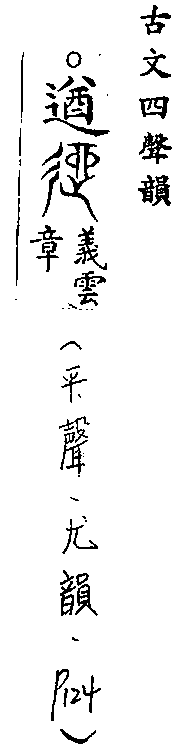 古文四聲韻
遒
義雲
章
(平聲、尤韻、P124)